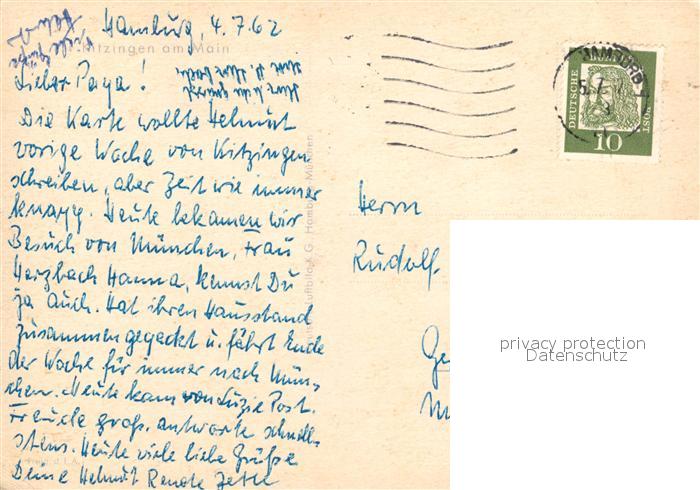 Hamburg, 4.7.62
Viele Grüße
Kitzingen am Main
Lieber Papa!
Die Karte wollte Helmut
vorige Woche von Kitzingen
schreiben, aber Zeit wie immer
knapp. Heute bekamen wir
Besuch von München, Frau
Herzbach Hanna, kennst Du
ja auch. Hat ihren Hausstand
zusammengepackt u. fährt Ende
der Woche für immer nach Mün-
chen. Heute kam von Luzie Post.
Freude groß. antworte schnell-
stens. Heute viele liebe Grüße
Deine Helmut Renate
DEUTSCHE BUNDESPOST
10
HAMBURG
Herrn
Rudolf
privacy protection
Datenschutz